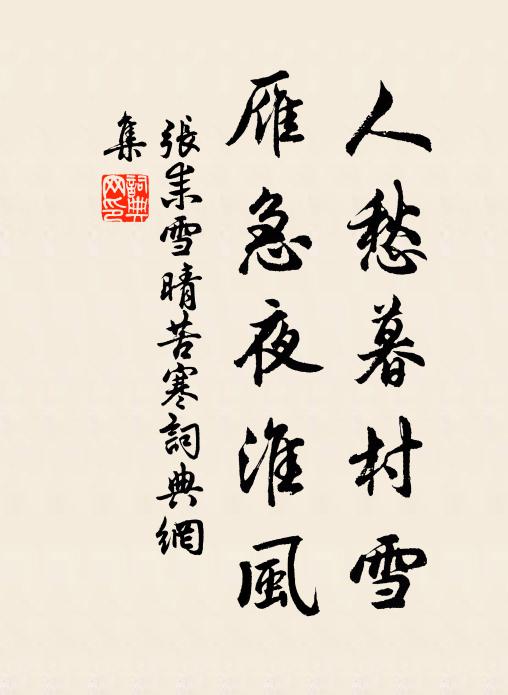 人愁暮村雪
雁急夜淮風
張耒雪晴苦寒詞典網
集
詞典
網印